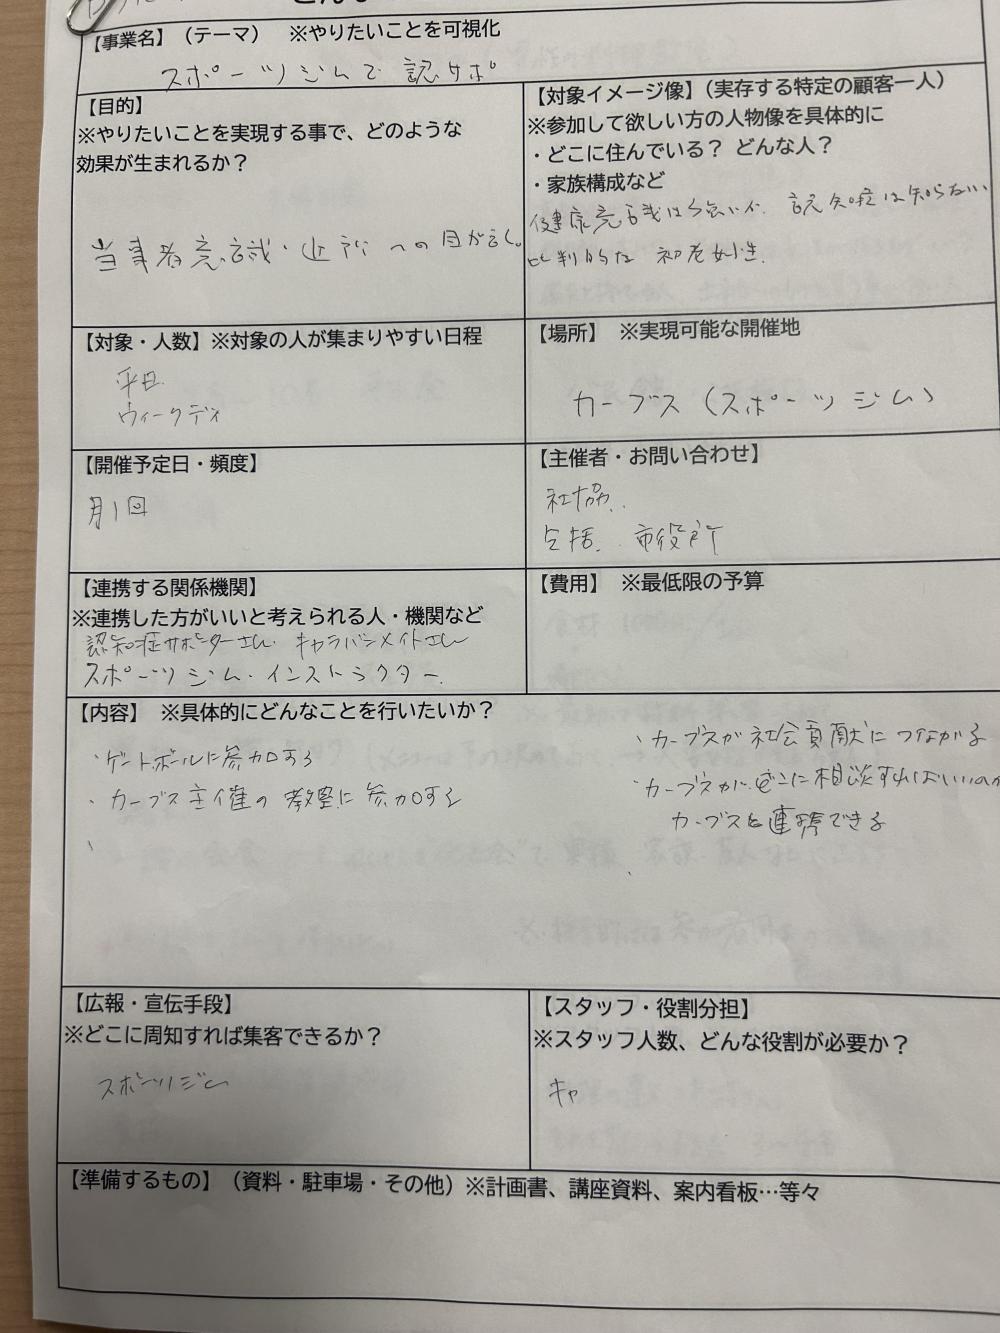 【事業名】（テーマ） ※やりたいことを可視化
スポーツジムで 認サポ
【目的】
※やりたいことを実現する事で、どのような
効果が生まれるか？
当事者意識・近所への目が訳。
【対象イメージ像】（実存する特定の顧客一人）
※参加して欲しい方の人物像を具体的に
・どこに住んでいる？ どんな人？
・家族構成など
健康意識は高いが、認知症は知らない
比判的な 初老女性.
【対象・人数】※対象の人が集まりやすい日程
平日
ウィークデイ
【場所】 ※実現可能な開催地
カーブス（スポーツジム）
【開催予定日・頻度】
月1回
【主催者・お問い合わせ】
社協.
包括. 市役所
【連携する関係機関】
※連携した方がいいと考えられる人・機関など
認知症サポーターさん. キャラバンメイトさん
スポーツジム・インストラクター.
【費用】 ※最低限の予算
【内容】 ※具体的にどんなことを行いたいか？
・ゲートボールに参加する
・カーブス主催の教室に参加する
、
・カーブスが社会貢献につながる
・カーブスが.どこに相談すればいいのか
カーブスと連携できる
【広報・宣伝手段】
※どこに周知すれば集客できるか？
スポーツジム
【スタッフ・役割分担】
※スタッフ人数、どんな役割が必要か？
キャ
【準備するもの】（資料・駐車場・その他）※計画書、講座資料、案内看板…等々